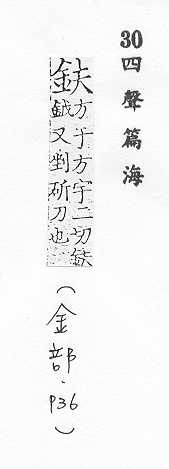 30四聲篇海
鈇方于方宇二切鈇
鉞又剉斫刀也
（金部．P36）